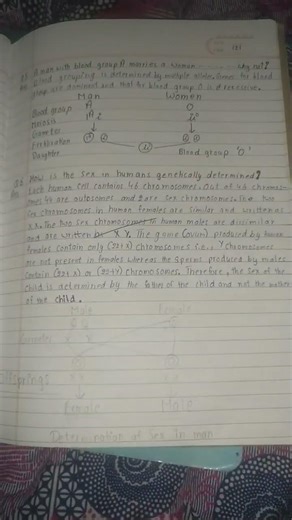 A man with blood group A marries a women why not?
blood grouping is determined by multiple alleles. Genes for blood
group are dominant and that for blood group O is recessive.
Man Women
Blood group A O
Meiosis
Gametes
Fertilisation
Daughter Blood group 'O'
How is the sex in humans genetically determined?
Each human cell contains 46 chromosomes. Out of 46 chromos-
omes 44 are autosomes and 2 are sex chromosomes. The two
sex chromosomes in human females are similar and written as
X X. The two sex chromosomes in human males are dissimilar
and are written as X Y. The gamete (ovum) produced by human
females contain only (22+X) chromosomes i.e. Y chromosomes
are not present in females whereas the sperms produced by males
contain (22+X) or (22+Y) chromosomes. Therefore, the sex of the
child is determined by the father of the child and not the mother
of the child.
Male Female
Gametes
Offsprings
Female Male
Determination of sex in man